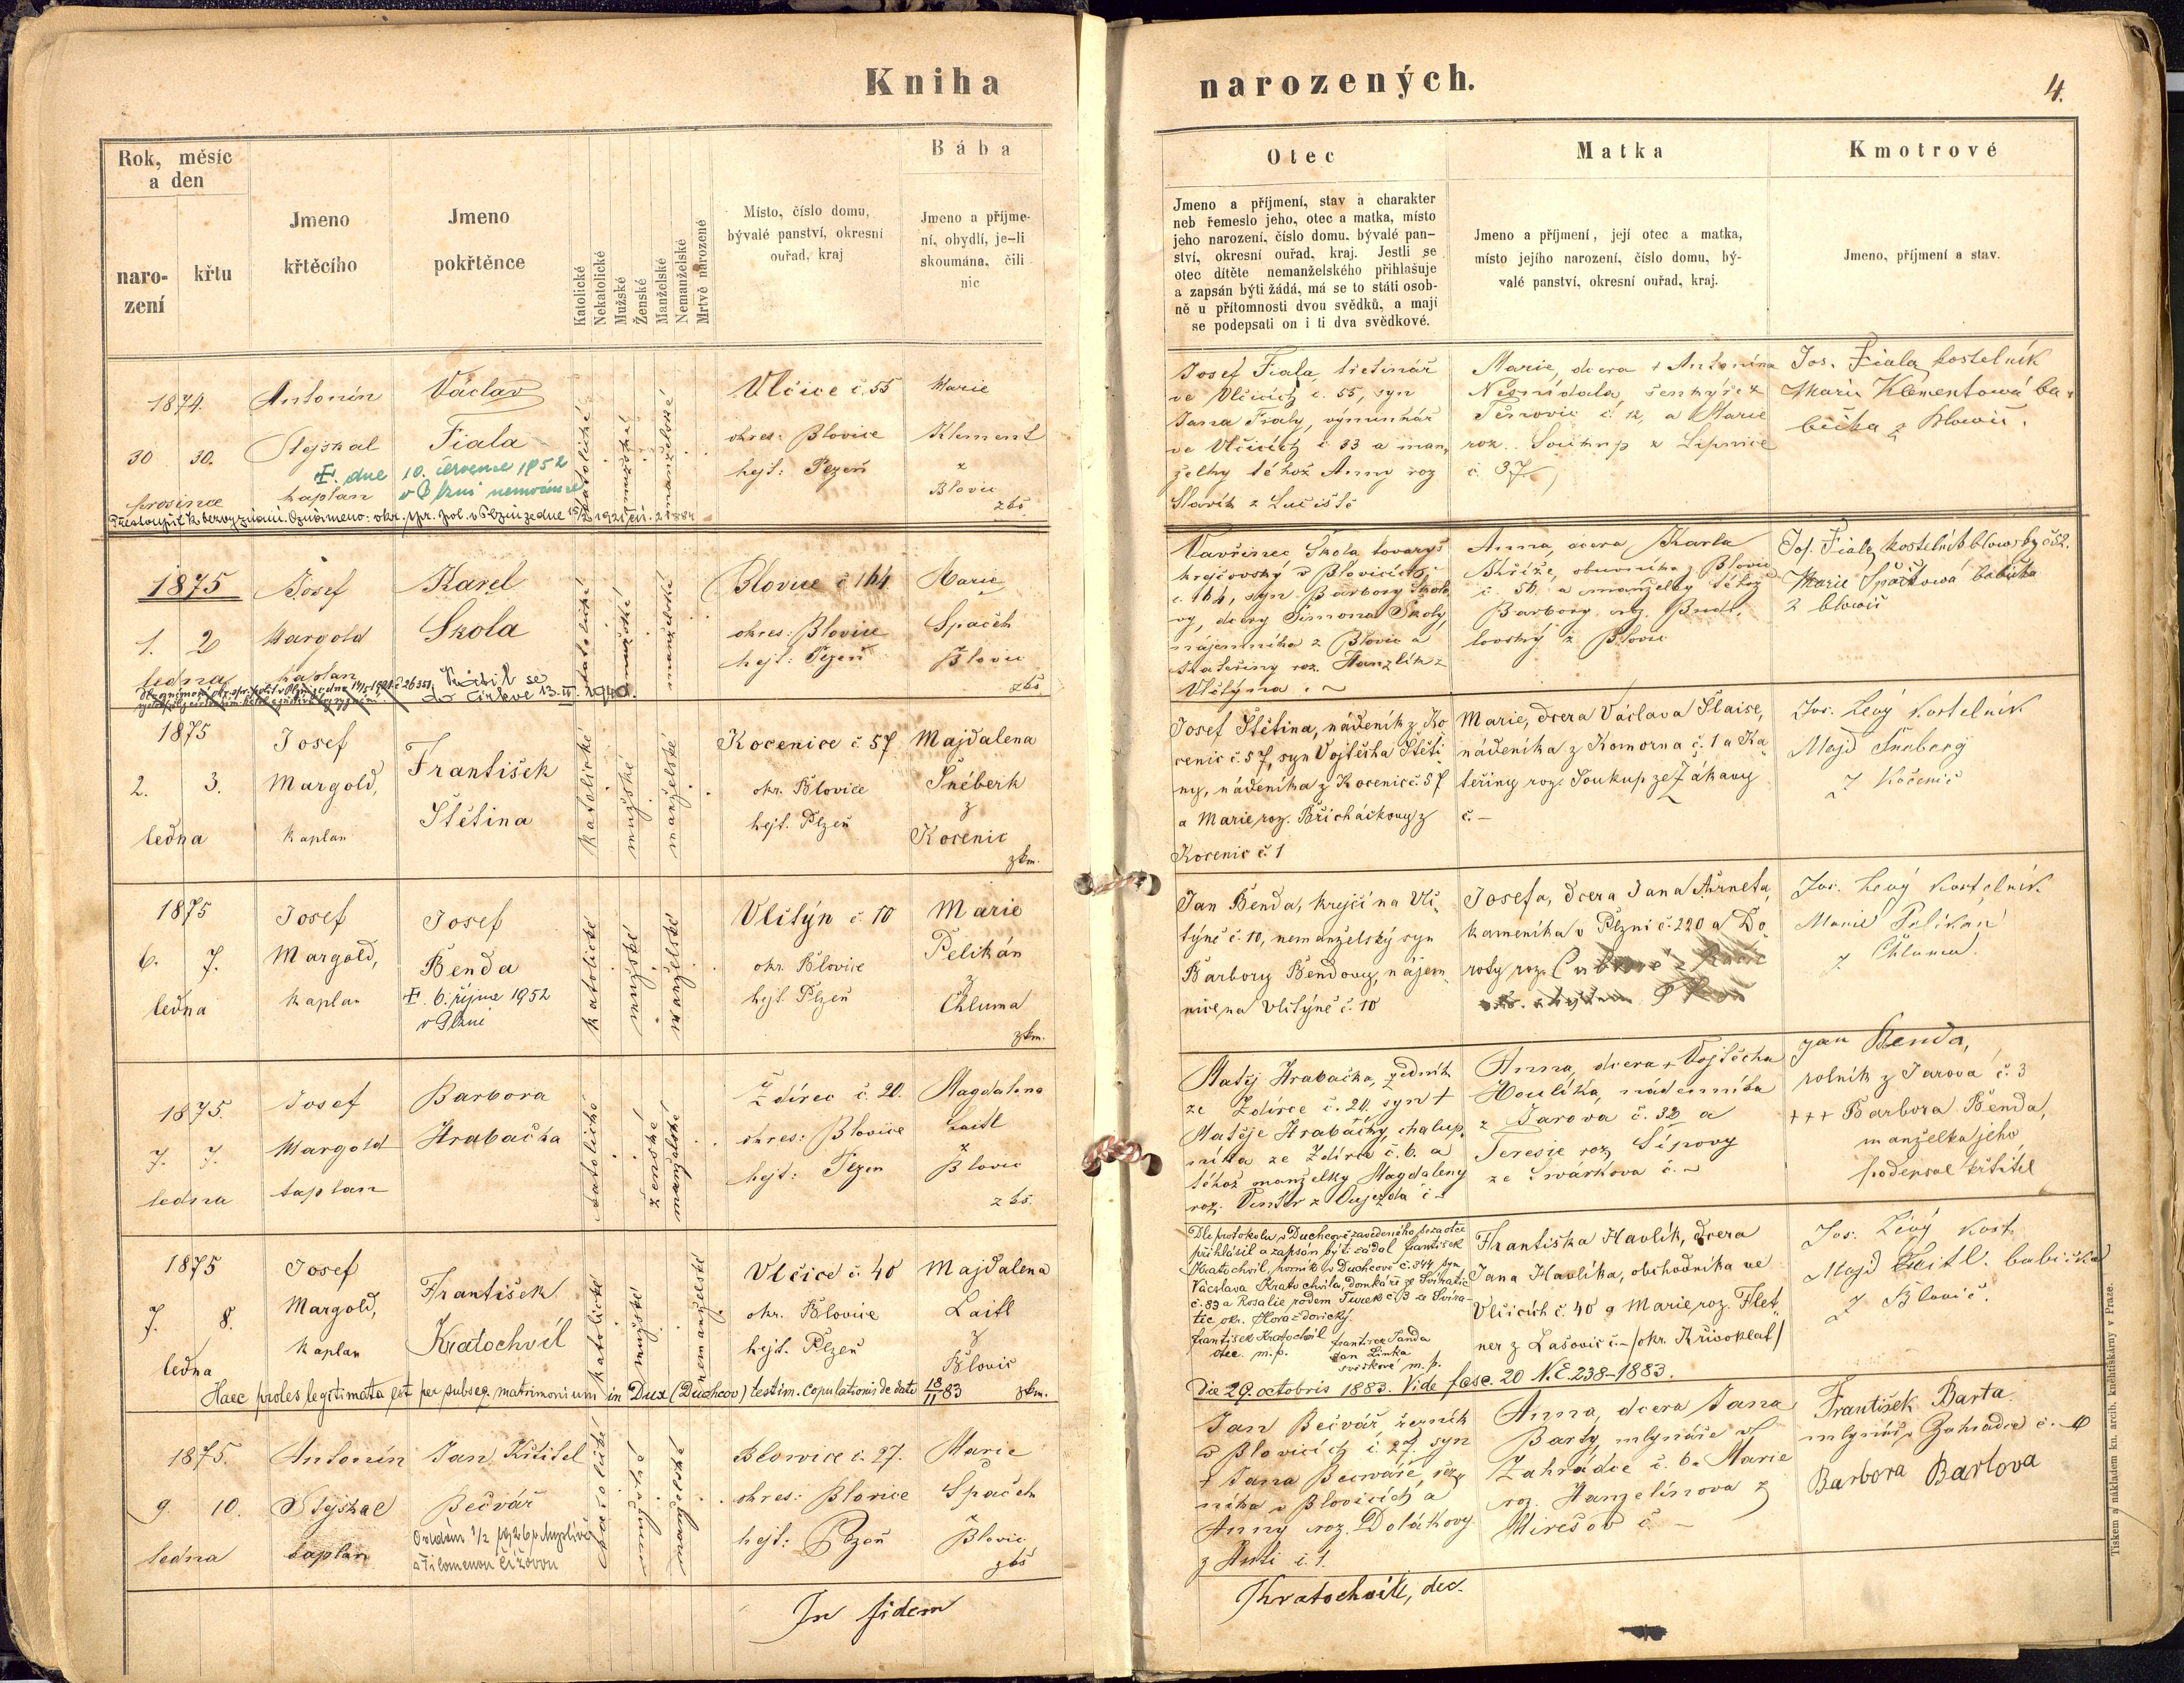 Kniha
narozených.
4.
Rok, měsíc
a den
naro-
zení
křtu
Jmeno
křtěcího
Jmeno
pokřtěnce
Katolické
Nekatolické
Mužské
Ženské
Manželské
Nemanželské
Mrtvě narozené
Místo, číslo domu,
bývalé panství, okresní
ouřad, kraj
Bába
Jmeno a příjme-
ní, obydlí, je-li
skoumána, čili
nic
Otec
Jmeno a příjmení, stav a charakter
neb řemeslo jeho, otec a matka, místo
jeho narození, číslo domu, bývalé pan-
ství, okresní ouřad, kraj. Jestli se
otec dítěte nemanželského přihlašuje
a zapsán býti žádá, má se to státi osob-
ně u přítomnosti dvou svědků, a mají
se podepsati on i ti dva svědkové.
Matka
Jmeno a příjmení, její otec a matka,
místo jejího narození, číslo domu, bý-
valé panství, okresní ouřad, kraj.
Kmotrové
Jmeno, příjmení a stav.
1874.
30 30.
prosince
Antonín
Stejskal
kaplan
Václav
Fiala
+. dne 10. července 1952
v Plzni
katolické
mužské
manželské
Vlčice č. 55
okres: Blovice
hejt: Plzeň
Marie
Klement
z
Blovic
zkš.
Josef Fiala,
ve Vlčicích č. 55, syn
Jana Fialy, výminkář
ve Vlčicích č. 33 a man-
želky téhož Anny roz
Slavík z
Marie, dcera + Antonína
z
č. 12, a Marie
roz. Soukup z
č. 37.
Jos. Fiala kostelník
Marie Klementová ba-
bička z Blovic.
1875
1. 2
ledna
Josef
Margold
kaplan
Karel
Škola
se
do Církve 13. 1940.
katolické
mužské
manželské
Blovice č 164
okres: Blovice
hejt: Plzeň
Marie
Spaček
z
Blovic
zkš.
Vavřinec Škola tovaryš
krejčovský v Blovicích
č. 164, syn Barbory Školo-
vy, dcery Šimona Školy,
nájemníka z Blovic a
Kateřiny roz. Hanzlík z
Vlčtýna.
Anna, dcera Karla
Skříže, obuvníka z Blovic
č. 56 a manželky téhož
Barbory roz.
z Blovic
Jos. Fiala, kostelník blow. by č 52.
Marie Špačková babička
z blowic
1875
2. 3.
ledna
Josef
Margold,
kaplan
František
Štětina
katolické
mužské
manželské
Kocenice č. 57
okr. Blovice
hejt. Plzeň
Majdalena
Šnéberk
z
Kocenic
zkm.
Josef Štětina, nádeník z Ko
cenic č. 57, syn Vojtěcha Štěti
ny, nádeníka z Kocenic č. 57
a Marie, roz. Břicháčkovy z
Kocenic č. 1
Marie, dcera Václava Šlaise,
nádeníka z Komorna č. 1 a Ka-
teřiny roz. Soukup ze Žákavy
č. —
Jos. Levý kostelník
Majd Šneberg
z Kočenic
1875
6. 7.
ledna
Josef
Margold,
kaplan
Josef
Benda
+. 6. října 1952
v Plzni
katolické
mužské
manželské
Vlčtýn č. 10
okr. Blovice
hejt. Plzeň
Marie
Pelikán
z
Chluma
zkm.
Jan Benda, krejčí na Vlč-
týně č. 10, nemanželský syn
Barbory Bendovy, nájem
nice na Vlčtýně č. 10
Josefa, dcera Jana
kameníka v Plzni č. 220 a Do-
roty roz.
Jos. Levý kostelník.
Marie Pelikán
z Chluma.
1875.
7. 7.
ledna
Josef
Margold
kaplan
Barbora
Hrabačka
katolické
ženské
manželské
Ždírec č. 20.
okres: Blovice
hejt: Plzen
Magdalena
Laitl
z
Blovic
zkš.
Matěj Hrabačka, zedník
ze Ždírce č. 20. syn +
Matěje Hrabačky, chalup-
níka ze Ždírce č. 6. a
téhož manželky Magdaleny
roz. z Oujezda č. —
Anna, dcera + Vojtěcha
Houlíka, nádenníka
z Jarova č. 32 a
Teresie roz Šípovy
ze č. —
Jan Benda,
rolník z Jarova č. 3
+++ Barbora Benda,
manželka jeho
podepsal křtitel
1875
7. 8.
ledna
Josef
Margold,
kaplan
František
Kratochvíl
katolické
mužské
nemanželské
Vlčice č. 40
okr. Blovice
hejt. Plzeň
Majdalena
Laitl
z
Blovic
zkm.
Haec proles legitimata est per subseq. matrimonium in Dux (Duchcov) testim. copulationis de dato 18/11 83
Dle protokolu v Duchcově zavedeného, se za otce
přihlásil a zapsán býti žádal František
Kratochvíl, horník v Duchcově č. 344 syn
Václava Kratochvíla, domkáře ze
č. 83 a Rosalie rodem Turek č. 13 ze
okr. Horažďovický.
František Kratochvíl
otec. m.p.
František Janda
Jan Linka
svědkové m.p.
Die 29. octobris 1883. Vide fasc. 20 N.E. 238-1883.
Františka Havlík, dcera
Jana Havlíka, obchodníka ve
Vlčicích č. 40 a Marie roz. Flet-
ner z Lašovic č. — /okr. Křivoklat/
Jos. Levý kost.
Majd Leitl. babička
z Blovic.
1875.
9. 10.
ledna
Antonín
Stejskal
kaplan
Jan Křtitel
Bečvář
Oddán
s Filomenou Čížovou
katolické
mužské
manželské
Blovice č. 27.
okres: Blovice
hejt: Plzeň
Marie
Spaček
z
Blovic
zkš
Jan Bečvář, řezník
v Blovicích č. 27. syn
+ Jana Bečváře, řez-
níka v Blovicích a
Anny roz. Dolákovy
z Huti č. 1.
Anna, dcera Jana
Barty, mlynáře v
Zahrádce č. 6 a Marie
roz. Hanzelínova z
Mirešov č. —
František Barta
mlynář v Zahradce č.
Barbora Bartova
In fidem
Kratochvíle, dec.
Tiskem a nákladem kn. arcib. kněhtiskárny v Praze.